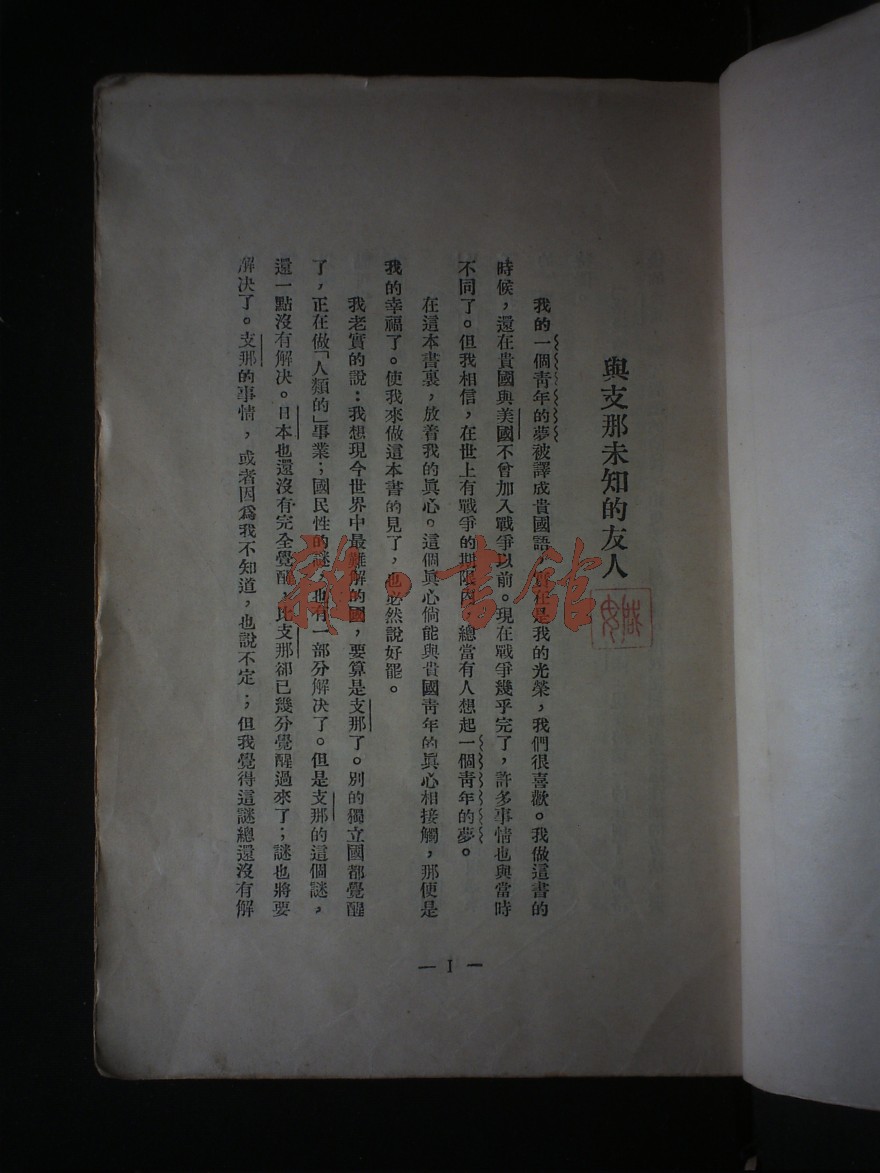 與支那未知的友人
我的一個靑年的夢被譯成貴國語，實在是我的光榮，我們很喜歡。我做這書的
時候，還在貴國與美國不曾加入戰爭以前。現在戰爭幾乎完了，許多事情也與當時
不同了。但我相信，在世上有戰爭的期限內，總當有人想起一個靑年的夢。
在這本書裏，放着我的眞心。這個眞心倘能與貴國靑年的眞心相接觸，那便是
我的幸福了。使我來做這本書的見了，也必然說好罷。
我老實的說：我想現今世界中最難解的國，要算是支那了。別的獨立國都覺醒
了，正在做「人類的」事業；國民性的謎，也有一部分解決了。但是支那的這個謎，
還一點沒有解决。日本也還沒有完全覺醒，比支那卻已幾分覺醒過來了；謎也將要
解决了。支那的事情，或者因爲我不知道，也說不定；但我覺得這謎總還沒有解
— I —
雜·書館